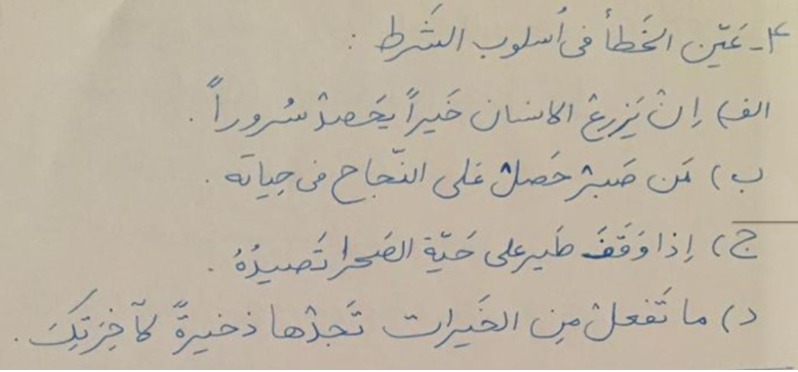 ۴- عَيّن الخَطأ فی اُسلوب الشَرط :
الف) إنْ يَزرعْ الانسان خَيراً يَحَصدْ سُروراً .
ب) مَن صَبرْ حَصلْ عَلی النّجاح فی حياته .
ج) إذا وَقَفَ طَير علی حَيّة الصَحرا تَصيدُهُ .
د) ما تَفعلْ مِن الخَيرات تَجدْها ذخيرةً لآخِرَتِكَ .